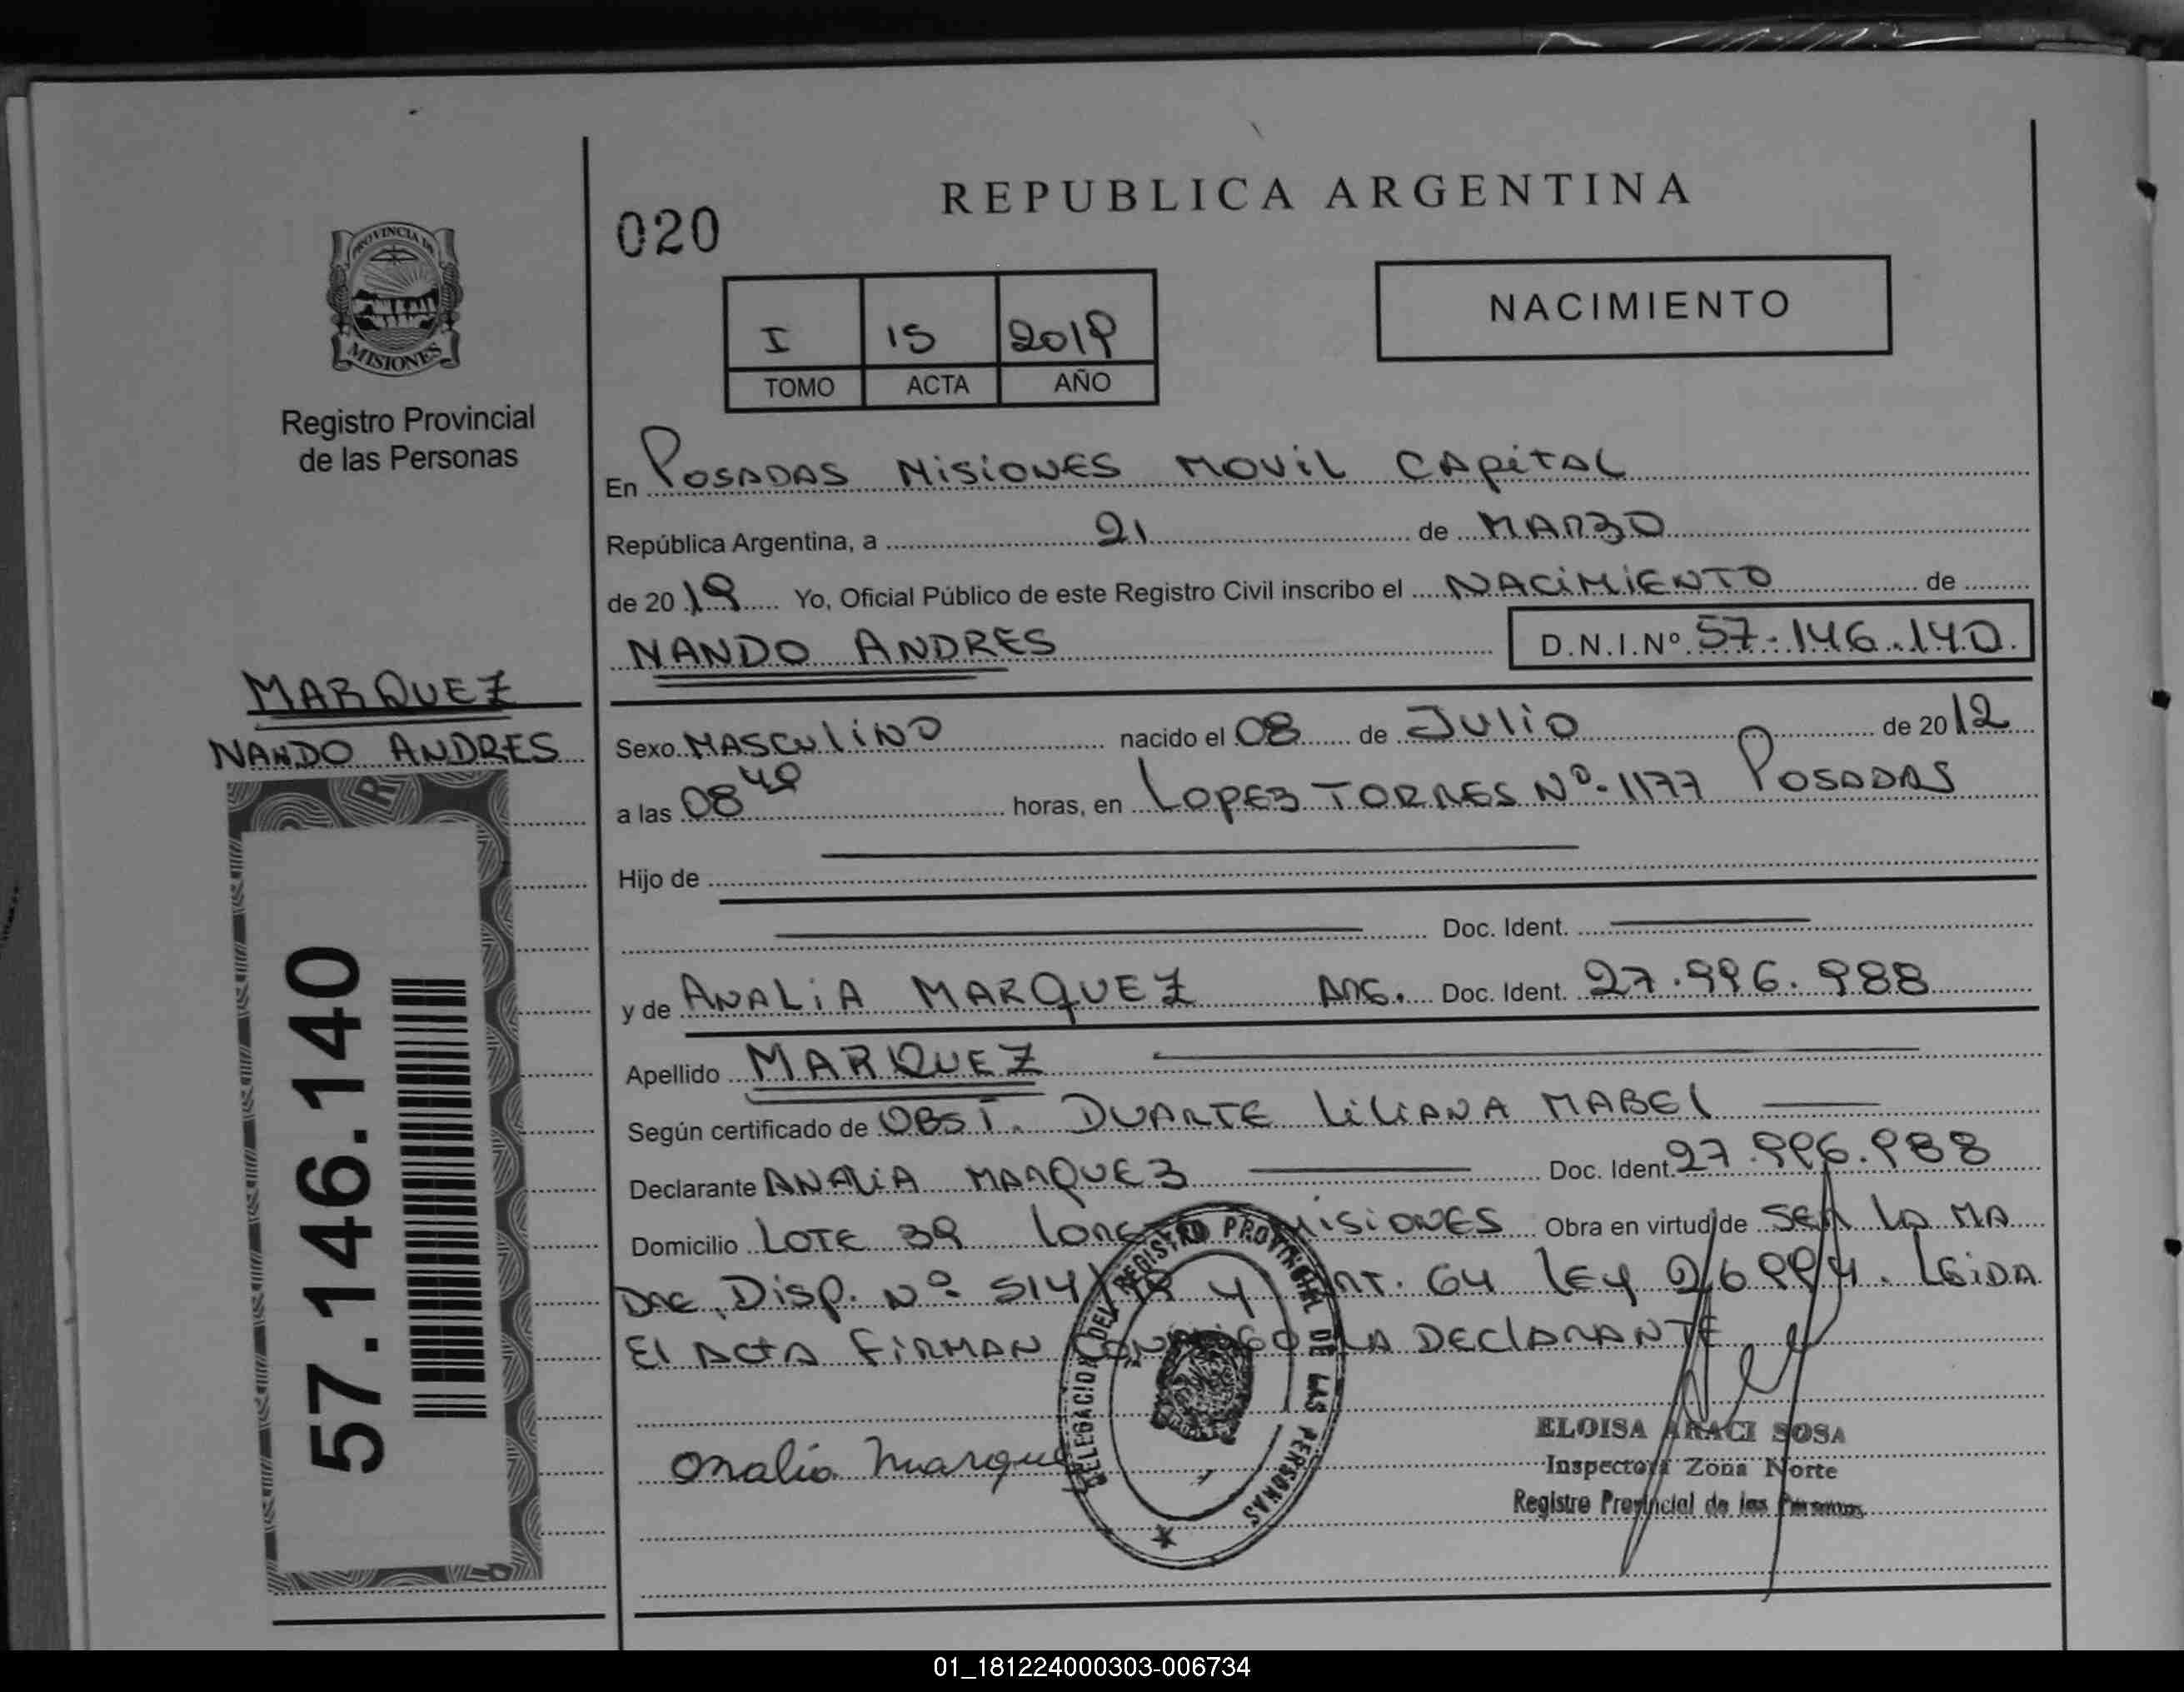 REPUBLICA ARGENTINA
020
NACIMIENTO
PROVINCIA DE
MISIONES
I 15 2019
TOMO ACTA AÑO
Registro Provincial
de las Personas
En POSADAS MISIONES MOVIL CAPITAL
República Argentina, a 21 de MARZO
de 2019 Yo, Oficial Público de este Registro Civil inscribo el NACIMIENTO de
NANDO ANDRES D.N.I.Nº 57.146.140.
MARQUEZ
NANDO ANDRES
Sexo MASCULINO nacido el 08 de JULIO de 2012
a las 08 40 horas, en LOPEZ TORRES Nº.1177 POSADAS
Hijo de
Doc. Ident.
y de ANALIA MARQUEZ ARG. Doc. Ident. 27.996.988
Apellido MARQUEZ
Según certificado de OBST. DUARTE LILIANA MABEL
Declarante ANALIA MARQUEZ Doc. Ident. 27.996.988
Domicilio LOTE 39 MISIONES Obra en virtud de SER LA MA
DRE, Disp. Nº 514 Y ART. 64 LEY 26994. LEIDA
El ACTA FIRMAN CONMIGO LA DECLARANTE
57.146.140
Analia Marquez
DELEGACION DEL REGISTRO PROVINCIAL DE LAS PERSONAS
ELOISA ARACI SOSA
Inspectora Zona Norte
Registro Provincial de las Personas
01_181224000303-006734